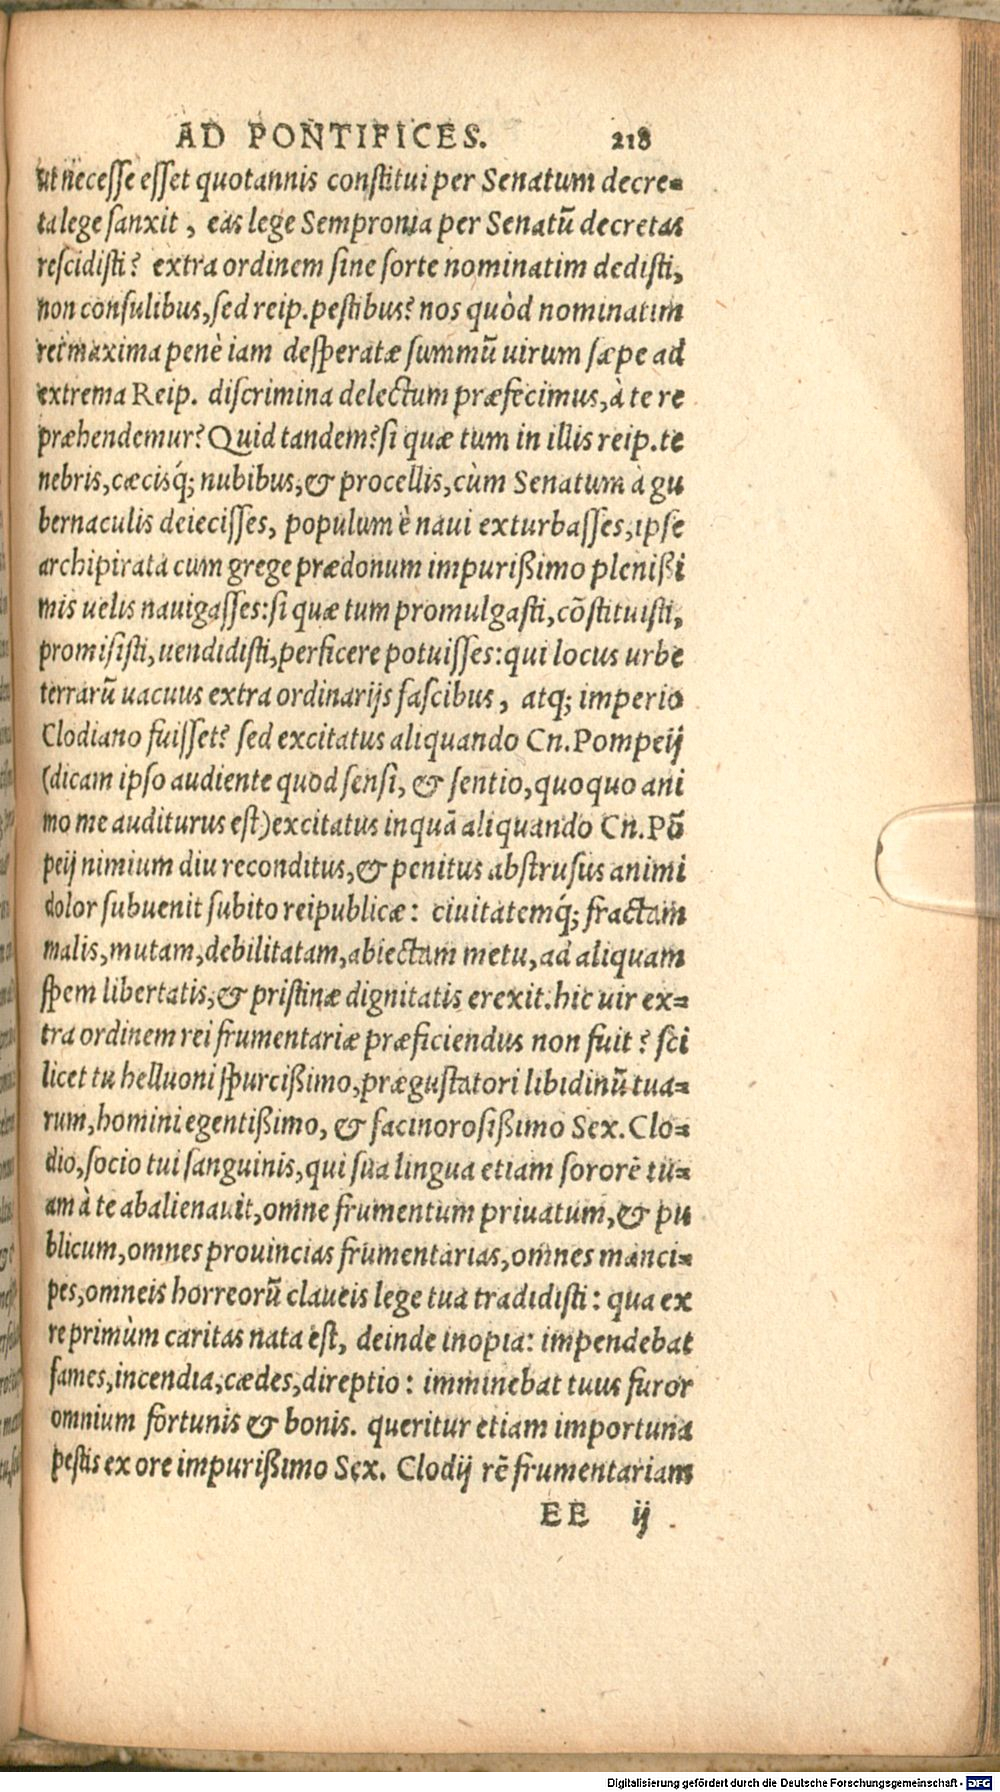 AD PONTIFICES. 218
ut necesse esset quotannis constitui per Senatum decre-
ta lege sanxit, eas lege Sempronia per Senatũ decretas
rescidisti? extra ordinem sine sorte nominatim dedisti,
non consulibus, sed reip. pestibus? nos quòd nominatim
rei maxima penè iam desperatæ summũ uirum sæpe ad
extrema Reip. discrimina delectum præfecimus, à te re
præhendemur? Quid tandem? si quæ tum in illis reip. te
nebris, cæcisq́; nubibus, & procellis, cùm Senatum à gu
bernaculis deiecisses, populum è naui exturbasses, ipse
archipirata cum grege prædonum impurißimo plenißi
mis uelis nauigasses: si quæ tum promulgasti, cõstituisti,
promisisti, uendidisti, perficere potuisses: qui locus urbe
terrarũ uacuus extra ordinarijs fascibus, atq; imperio
Clodiano fuisset? sed excitatus aliquando Cn. Pompeij
(dicam ipso audiente quod sensi, & sentio, quoquo ani
mo me auditurus est) excitatus inquã aliquando Cn. Põ
peij nimium diu reconditus, & penitus abstrusus animi
dolor subuenit subito reipublicæ: ciuitatemq́; fractam
malis, mutam, debilitatam, abiectam metu, ad aliquam
spem libertatis, & pristinæ dignitatis erexit. hic uir ex-
tra ordinem rei frumentariæ præficiendus non fuit? sci
licet tu helluoni spurcißimo, prægustatori libidinũ tua-
rum, homini egentißimo, & facinorosißimo Sex. Clo-
dio, socio tui sanguinis, qui sua lingua etiam sororẽ tu-
am à te abalienauit, omne frumentum priuatum, & pu
blicum, omnes prouincias frumentarias, omnes manci-
pes, omneis horreorũ claueis lege tua tradidisti: qua ex
re primùm caritas nata est, deinde inopia: impendebat
fames, incendia, cædes, direptio: imminebat tuus furor
omnium fortunis & bonis. queritur etiam importuna
pestis ex ore impurißimo Sex. Clodij rẽ frumentariam
EE ij
Digitalisierung gefördert durch die Deutsche Forschungsgemeinschaft - DFG